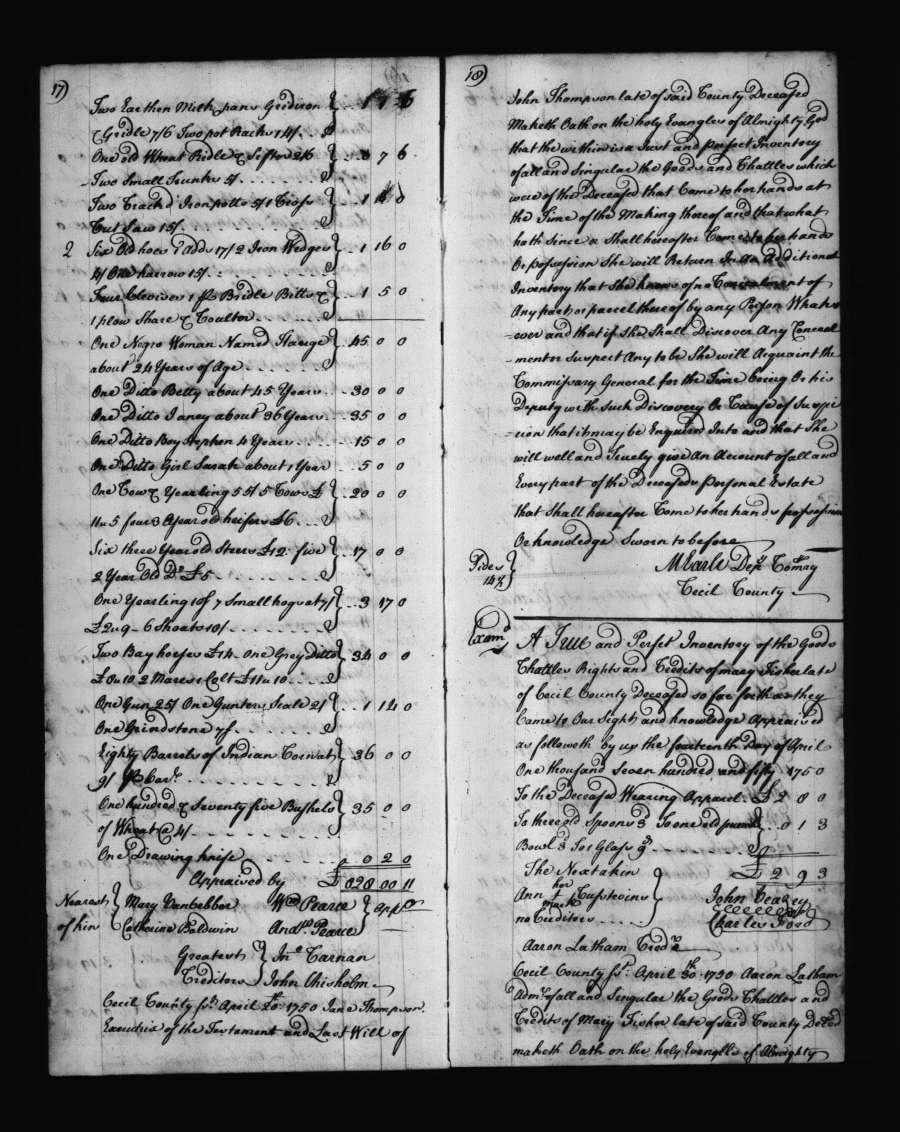 17)
Two Earthen Milk pans Gridiron
& Gridle 7/6 Two pot Racks 14/.
One old Wheat Ridle & Sifter 2/6 } .. 0 7 6
Two Small Trunks 5/. . . . . . . .
Two Crack'd Iron potts 5/ 1 Cross } .. 1 0
Cut Saw 15/. . . . . . . .
2 Six Old hoes 1 Adds 17/ 2 Iron Wedges } .. 1 16 0
4/ One harrow 15/. . . . . . . .
Four Clevises 1 pr Bridle Bitts & } .. 1 5 0
1 plow Share & Coulter . . . . . .
One Negro Woman Named } .. 45 0 0
about 24 Years of Age . . . . . .
One Ditto Betty about 45 Years .. 30 0 0
One Ditto Janey about 36 Years .. 35 0 0
One Ditto Boy Stephen 4 Years .. 15 0 0
One Ditto Girl Sarah about 1 Year .. 5 0 0
One Cow & Yearling 55/ 5 Cows £ } .. 20 0 0
11 u 5 four 3 Year old heifers £6 . . .
Six three Year old Steers £12: five } .. 17 0 0
2 Year Old Do £5 . . . . . .
One Yearling 10/ 7 Small hogs at 7/ } .. 3 17 0
£2 u 9 - 6 Shoats 10/ . . . . . .
Two Bay horses £14 One Grey Ditto } 34 0 0
£8 u 10 2 Mares 1 Colt £11 u 10 . . . .
One Gun 25/ One Gunters Scale 2/ } .. 1 14 0
One Grindstone 7/. . . . . . .
Eighty Barrels of Indian Corn at } 36 0 0
9/ p Barl. . . . . . . .
One hundred & Seventy five Bushels } 35 0 0
of Wheat @ 4/ . . . . . .
One Drawing knife . . . . . . 0 2 0
Appraised by £ 00 11
Nearest } Mary Vanbebber Wm Pearce } appr
of kin } Catherine Baldwin Andw Pearce }
Greatest } Jno Carnan
Creditors } John Chisholm
Cecil County ss. April 20th 1750 Jane Thompson
Executrix of the Testament and Last Will of
18)
John Thompson late of said County Deceased
Maketh Oath on the holy Evangles of Almighty God
that the within is a Just and perfect Inventory
of all and Singular the Goods and Chattles which
were of the Deceased that Came to her hands at
the Time of the Making thereof and that what
hath since or Shall hereafter Come to her hands
Or possession She will Return In an Additional
Inventory that She knows of no Concealment of
Any part or parcel thereof by any Person Whatso
-ever and that if She Shall Discover Any Conceal
-ment or suspect Any to be She will Acquaint the
Commissary General for the Time being Or his
Deputy with Such Discovery Or Cause of Suspi
-cion that it may be Enquired Into and that She
will well and Truely give An Account of all and
Every part of the Deceaseds personal Estate
that Shall hereafter Come to her hands possession
Or knowledge Sworn to before
Sides } M Earle Depy Comry
14½ } Cecil County
Examd A True and Perfet Inventory of the Goods
Chattles Rights and Credits of mary Fisher late
of Cecil County Deceased so far forth as they
Came to Our Sight and knowledge Appraised
as followeth by us the fourteenth Day of April
One thousand Seven hundred and fifty 1750
To the Deceased Wearing Apparel . £ 2 8 0
To three old Spoons To one old } .. 0 1 3
Bowl 3 To 1 Glass
The Next akin £ 2 9 3
Ann her mark John Veazey
no Creditors . . . . . Charles Ford
Aaron Latham Credr
Cecil County ss. April 30th 1750 Aaron Latham
Admr of all and Singular the Goods Chattles and
Credits of Mary Fisher late of said County Deced
maketh Oath on the holy Evanglls of Almighty